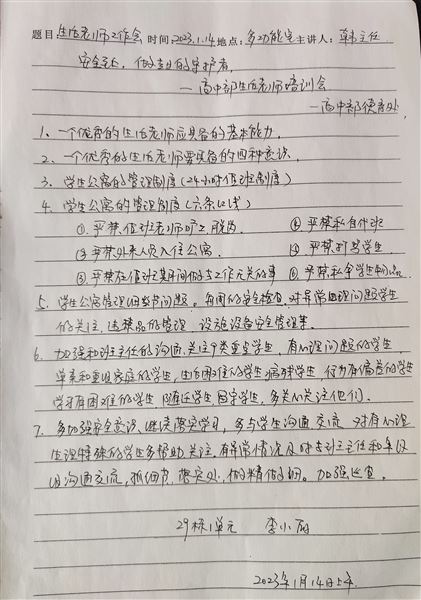 题目:生活老师工作会 时间:2023.1.14 地点:多功能室 主讲人:韩主任
安全无小, 做学生的守护者
—高中部生活老师培训会
—高中部德育处
1、一个优秀的生活老师应具备的基本能力.
2、一个优秀的生活老师要具备的四种意识.
3、学生公寓的管理制度(24小时值班制度)
4、学生公寓的管理制度(六条红线)
①严禁值班老师旷工、脱岗 ②严禁私自代班
③严禁外来人员入住公寓. ④严禁打骂学生
⑤严禁在值班期间做与工作无关的事 ⑥严禁私拿学生物品.
5、学生公寓管理细节问题. 每周的安全检查, 对异常心理问题学生
的关注, 违禁品的管理 设施设备安全管理等.
6、加强和班主任的沟通, 关注个类重点学生, 有心理问题的学生
单亲和重组家庭的学生, 生活困难的学生, 病残学生 行为有偏差的学生
学习有困难的学生, 随迁学生, 留守学生, 多关心关注他们.
7、多加强安全意识, 继续落实学习, 多与学生沟通交流 对有心理
生理特殊的学生多帮助关注, 有异常情况及时与班主任和年级
组沟通交流, 抓细节, 落实处, 做精做细. 加强巡查.
29栋1单元 李小丽
2023年1月14日上午